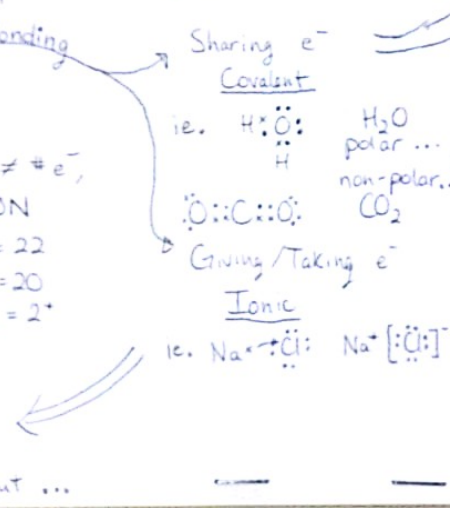 onding
Sharing e⁻
Covalent
ie. Hˣ:Ö: H₂O
H
polar ...
non-polar..
:Ö::C::Ö: CO₂
≠ # e⁻,
ON
= 22
= 20
= 2⁺
Giving/Taking e⁻
Ionic
ie. Naˣ → :Cl: Na⁺ [:Cl:]⁻
ut ...